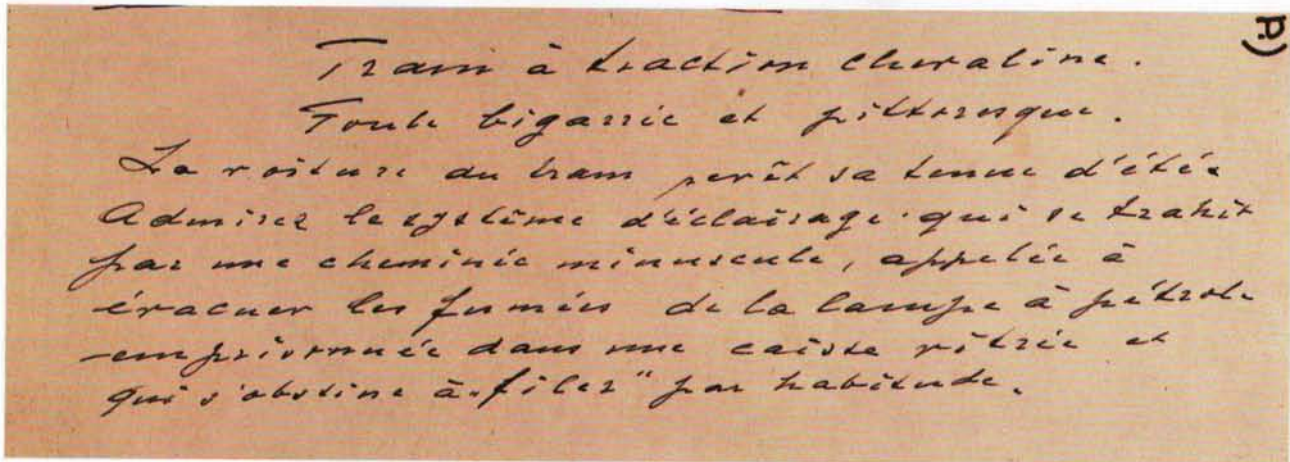 P.)
Tram à traction chevaline.
Foule bigarrée et pittoresque.
La voiture du tram revêt sa tenue d'été.
Admirez le système d'éclairage qui se trahit
par une cheminée minuscule, appelée à
évacuer les fumées de la lampe à pétrole
emprisonnée dans une caisse vitrée et
qui s'obstine à „filer" par habitude.